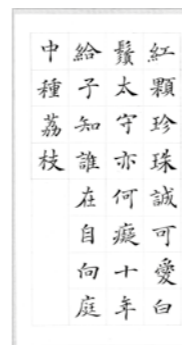 紅顆珍珠誠可愛白
鬚太守亦何癡十年
結子知誰在自向庭
中種荔枝